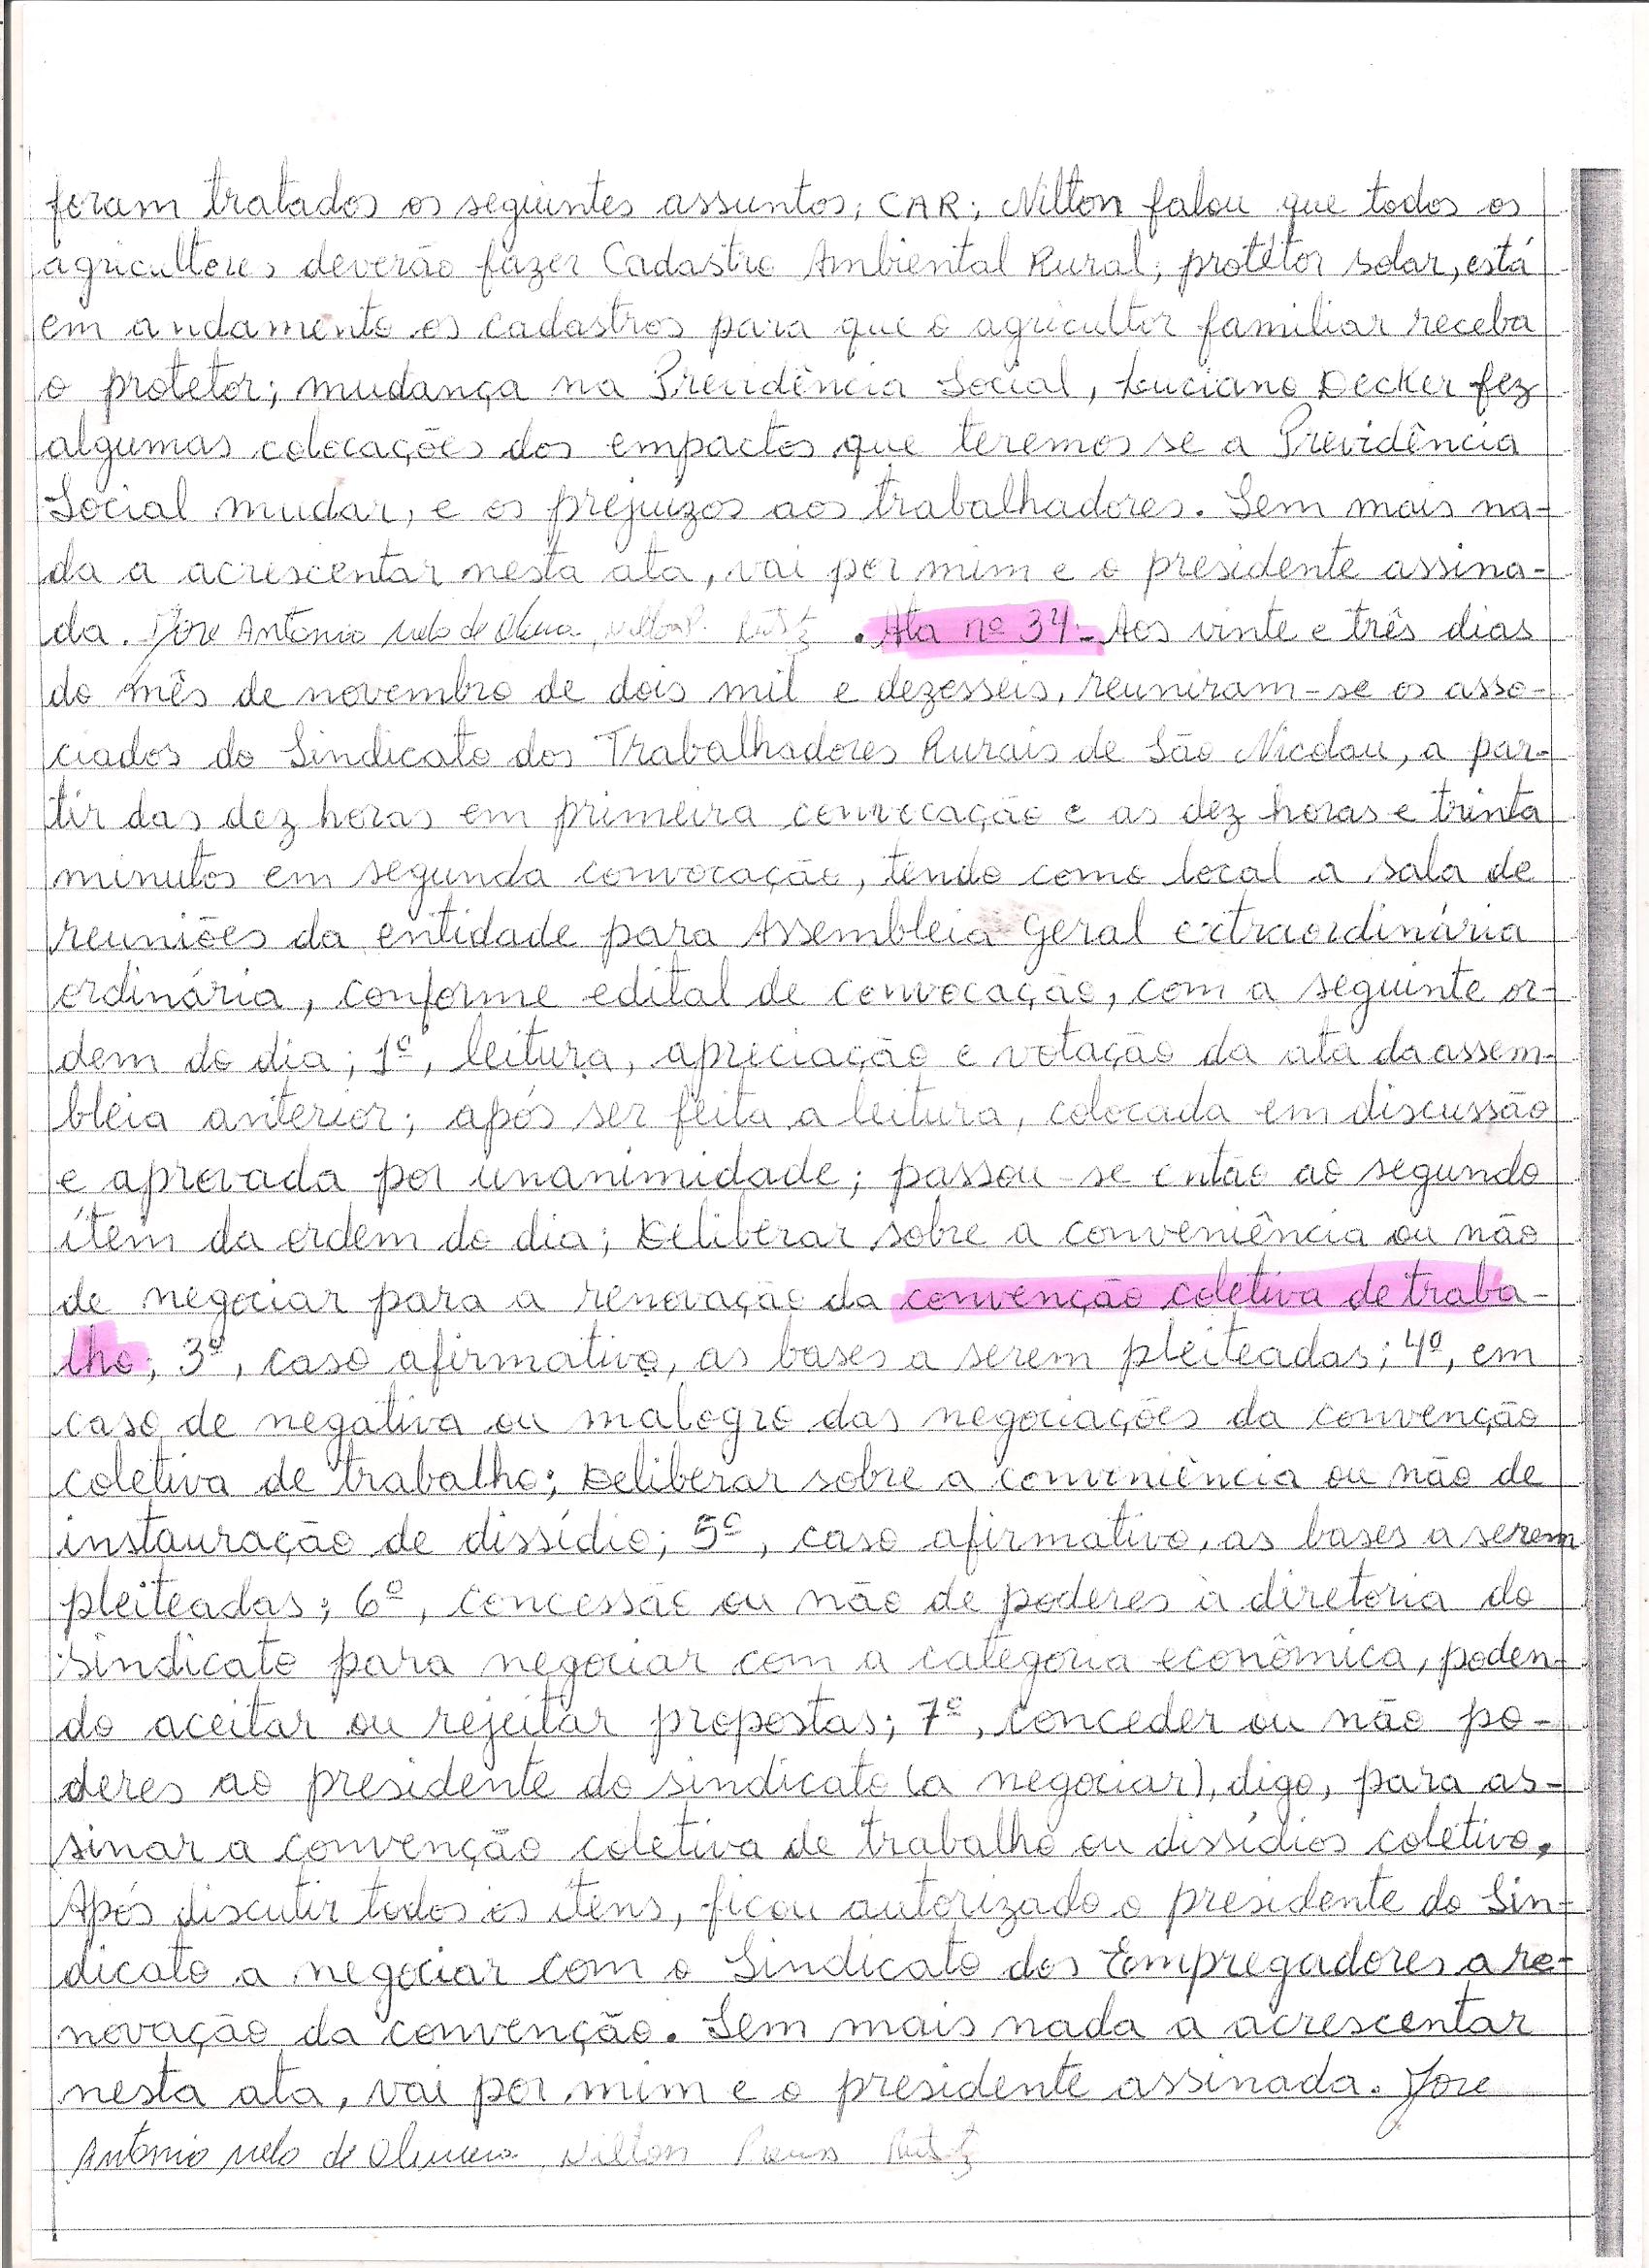 foram tratados os seguintes assuntos; CAR; Nilton falou que todos os
agricultores deverão fazer Cadastro Ambiental Rural; protetor solar, está
em andamento os cadastros para que o agricultor familiar receba
o protetor; mudança na Previdência Social, Luciano Decker fez
algumas colocações dos empactos que teremos se a Previdência
Social mudar, e os prejuizos aos trabalhadores. Sem mais na-
da a acrescentar nesta ata, vai por mim e o presidente assina-
da. Jose Antonio melo de Oliveira, Nilton P. . Ata nº 34 - Aos vinte e três dias
do mês de novembro de dois mil e dezesseis, reuniram-se os asso-
ciados do Sindicato dos Trabalhadores Rurais de São Nicolau, a par-
tir das dez horas em primeira convocação e as dez horas e trinta
minutos em segunda convocação, tendo como local a sala de
reuniões da entidade para Assembleia Geral extraordinária
ordinária, conforme edital de convocação, com a seguinte or-
dem do dia; 1º, leitura, apreciação e votação da ata da assem-
bleia anterior; após ser feita a leitura, colocada em discussão
e aprovada por unanimidade; passou-se então ao segundo
ítem da ordem do dia; Deliberar sobre a conveniência ou não
de negociar para a renovação da convenção coletiva de traba-
lho; 3º, caso afirmativo, as bases a serem pleiteadas; 4º, em
caso de negativa ou malogro das negociações da convenção
coletiva de trabalho; Deliberar sobre a conveniência ou não de
instauração de dissídio; 5º, caso afirmativo, as bases a serem
pleiteadas; 6º, concessão ou não de poderes à diretoria do
sindicato para negociar com a categoria econômica, poden-
do aceitar ou rejeitar propostas; 7º, conceder ou não po-
deres ao presidente do sindicato (a negociar), digo, para as-
sinar a convenção coletiva de trabalho ou dissídios coletivo.
Após discutir todos os itens, ficou autorizado o presidente do Sin-
dicato a negociar com o Sindicato dos Empregadores a re-
novação da convenção. Sem mais nada a acrescentar
nesta ata, vai por mim e o presidente assinada. Jose
Antonio melo de Oliveira, Nilton